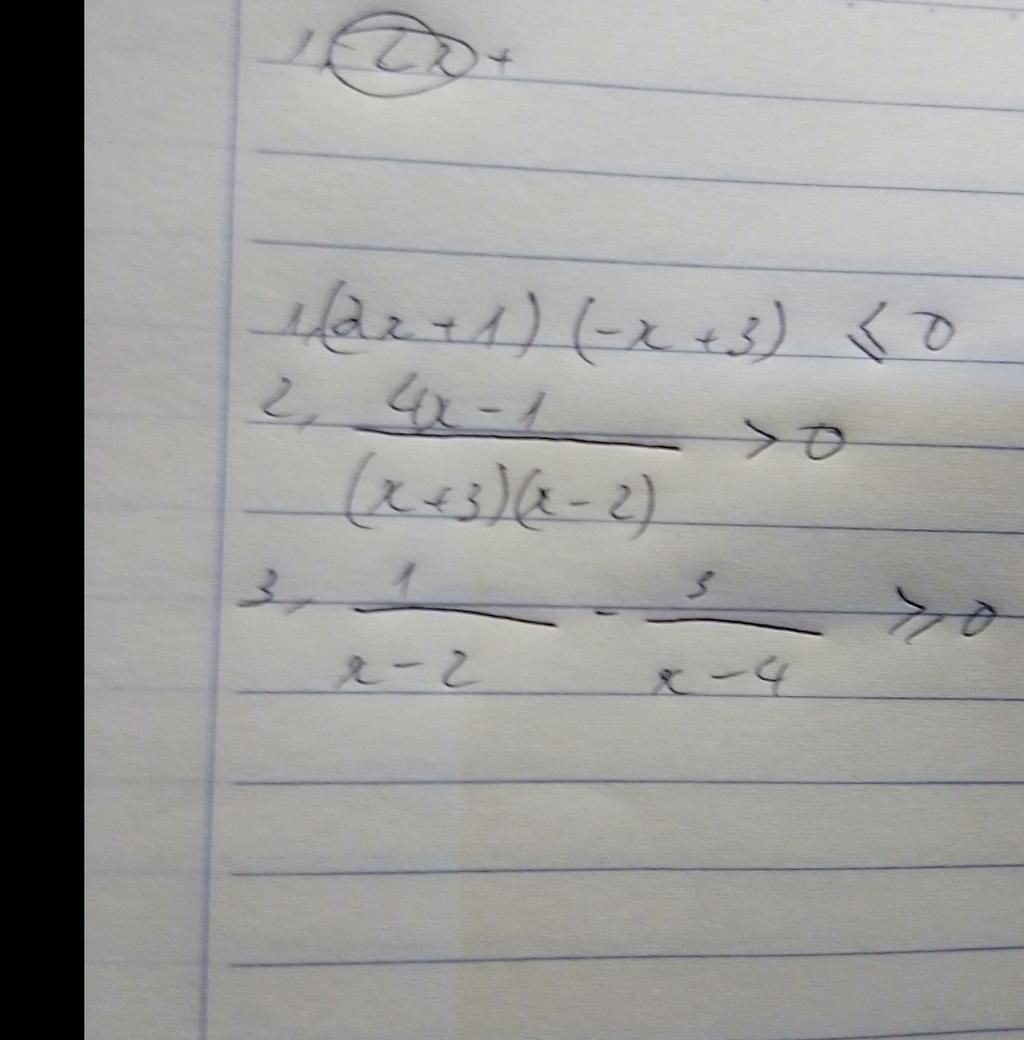 1, (2x+1)(-x+3) ≤ 0
2, (4x-1)/((x+3)(x-2)) > 0
3, 1/(x-2) - 3/(x-4) ≥ 0